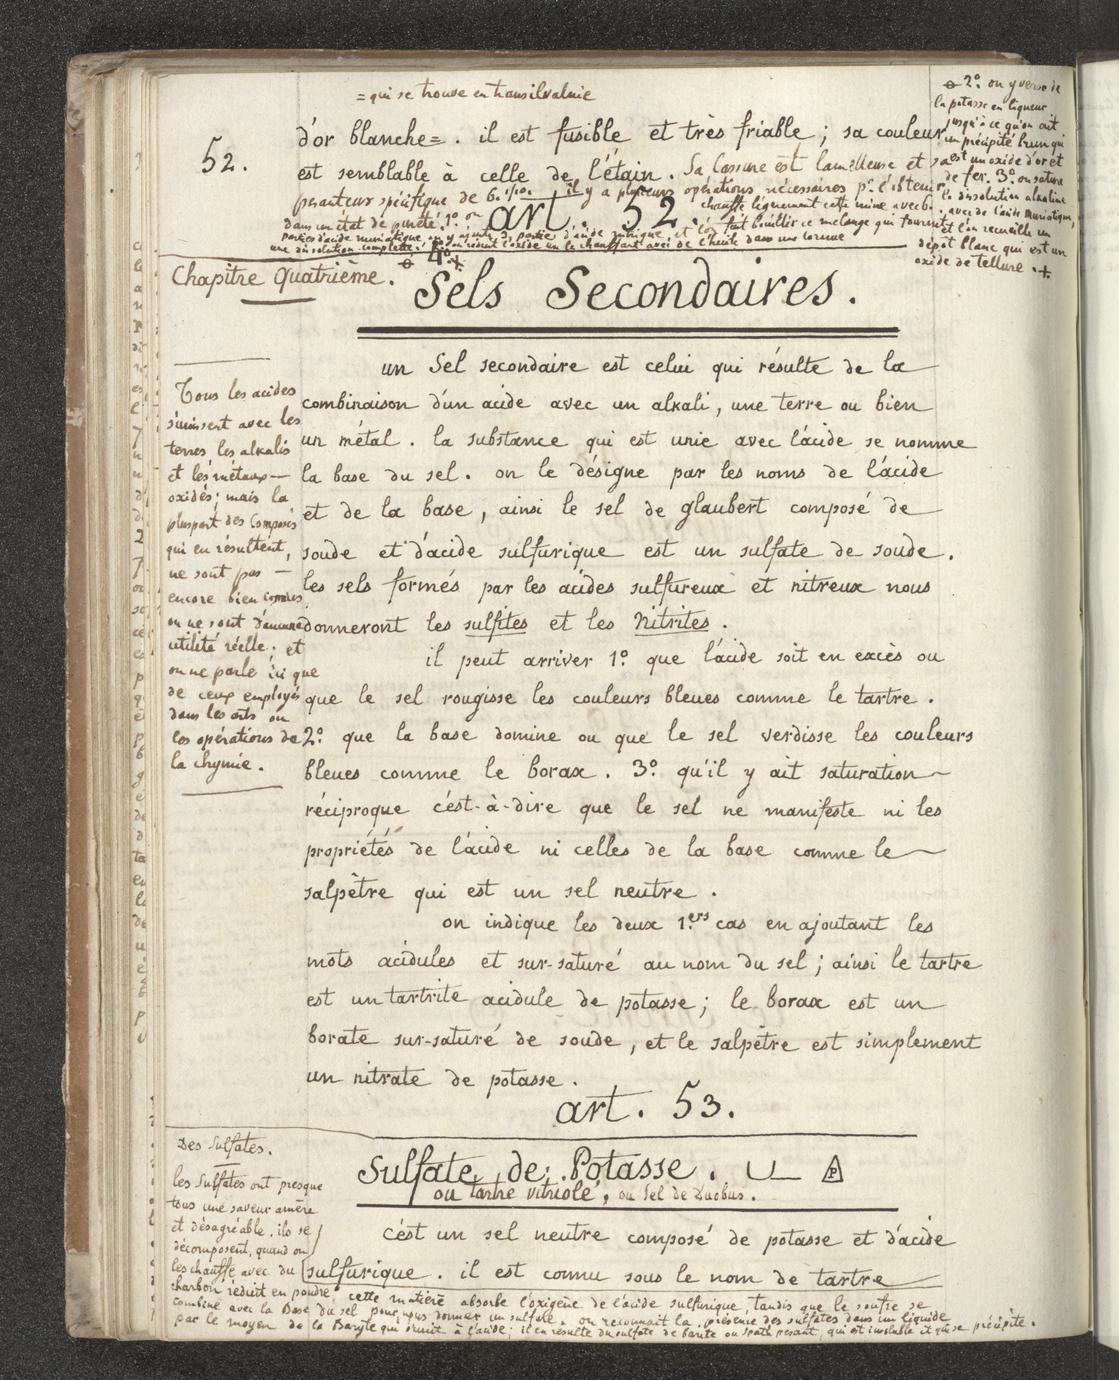 = qui se trouve en transilvalnie
52.
d'or blanche = . il est fusible et très friable ; sa couleur
est semblable à celle de l'étain . Sa Cassure est lamelleuse et sa
pesanteur spécifique de 6. 1/10. il y a plusieurs opérations nécessaires pr. l'obtenir
dans un état de pureté. 1º. on chauffe légnement cette mine avec 6
parties d'acide muriatique, on y ajoute 3 parties d'acide nitrique, et l'on fait bouillir ce mélange qui fournit
une dissolution complette. on réduit l'oxide en le chauffant avec de l'huile dans une cornue
ɵ 4º. +
ɵ 2º. on y verse de
la potasse en liqueur
jusqu'à ce qu'on ait
un précipité brun qui
est un oxide d'or et
de fer. 3º. on sature
la dissolution alkaline
avec de l'acide muriatique,
et l'on recueille un
dépôt blanc qui est un
oxide de tellure . +
art. 52.
Chapitre Quatrième .
Sels Secondaires .
un Sel secondaire est celui qui résulte de la
combinaison d'un acide avec un alkali, une terre ou bien
un métal . la substance qui est unie avec l'acide se nomme
la base du sel. on le désigne par les noms de l'acide
et de la base, ainsi le sel de glaubert composé de
soude et d'acide sulfurique est un sulfate de soude .
les sels formés par les acides sulfureux et nitreux nous
donneront les sulfites et les Nitrites .
il peut arriver 1º. que l'acide soit en excès ou
que le sel rougisse les couleurs bleues comme le tartre .
2º. que la base domine ou que le sel verdisse les couleurs
bleues comme le borax . 3º. qu'il y ait saturation
réciproque c'est-à-dire que le sel ne manifeste ni les
propriétés de l'acide ni celles de la base comme le
salpêtre qui est un sel neutre .
on indique les deux 1.ers cas en ajoutant les
mots acidules et sur-saturé au nom du sel ; ainsi le tartre
est un tartrite acidule de potasse ; le borax est un
borate sur-saturé de soude , et le salpêtre est simplement
un nitrate de potasse .
Tous les acides
s'unissent avec les
terres les alkalis
et les métaux
oxidés ; mais la
pluspart des Composés
qui en résultent,
ne sont pas
encore bien connus
ou ne sont d'aucune
utilité réelle. et
on ne parle ici que
de ceux employés
dans les arts ou
les opérations de
la chymie .
art. 53.
Sulfate de Potasse .
ou tartre vitriolé , ou Sel de Duobus .
c'est un sel neutre composé de potasse et d'acide
sulfurique . il est connu sous le nom de tartre
Des Sulfates.
les Sulfates ont presque
tous une saveur amère
et désagréable. ils se
décomposent, quand on
les chauffe avec du
charbon réduit en poudre ; cette matière absorbe l'oxigène de l'acide sulfurique, tandis que le soufre se
combine avec la Base du sel pour nous donner un sulfure. on reconnait la présence des sulfates dans un liquide
par le moyen de la Baryte qui s'unit à l'acide ; il en résulte du sulfate de barite ou spath pesant, qui est insoluble et qui se précipite .